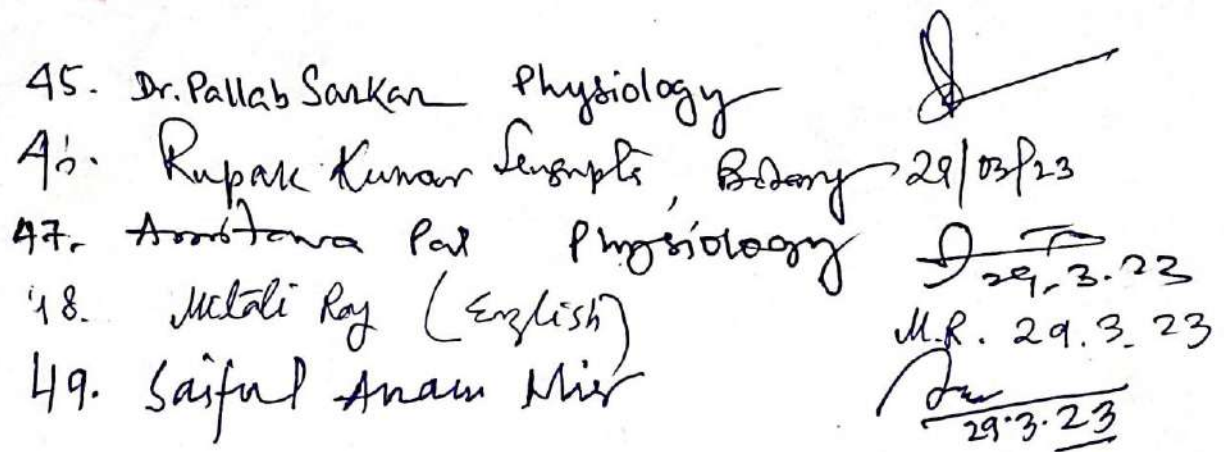 45. Dr. Pallab Sarkar Physiology
46. Rupak Kumar Sengupta, Botany 29/03/23
47. Pal Physiology 29.3.23
48. Mitali Roy (English) M.R. 29.3.23
49. Saiful Anam Mir 29.3.23